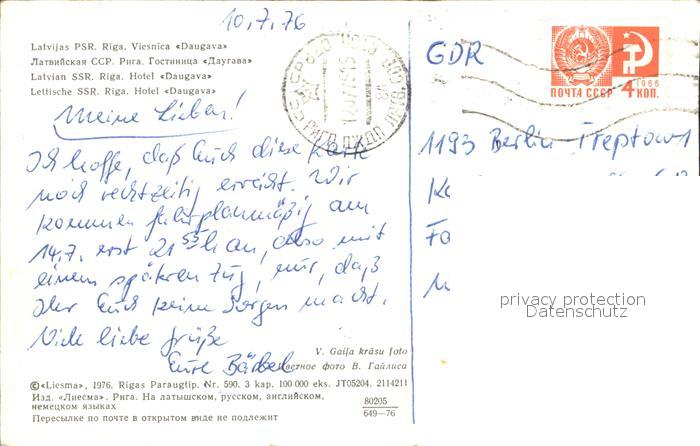 10.7.76
Latvijas PSR. Rīga. Viesnīca «Daugava»
Латвийская ССР. Рига. Гостиница «Даугава»
Latvian SSR. Riga. Hotel «Daugava»
Lettische SSR. Riga. Hotel «Daugava»
Meine Lieben!
Ich hoffe, daß Euch diese Karte
noch rechtzeitig erreicht. Wir
kommen fahrplanmäßig am
14.7. erst 21 53 h an, also mit
einem späteren Zug, nur, daß
Ihr Euch keine Sorgen macht.
Viele liebe Grüße
Eure Bärbel
V. Gaiļa krāsu foto
Цветное фото В. Гайлиса
©«Liesma», 1976. Rīgas Paraugtip. Nr. 590. 3 kap. 100 000 eks. JT05204. 2114211
Изд. «Лиесма». Рига. На латышском, русском, английском,
немецком языках
Пересылке по почте в открытом виде не подлежит
80205
649—76
GDR
1966
ПОЧТА СССР 4 КОП.
1193 Berlin-Treptow 1
privacy protection
Datenschutz